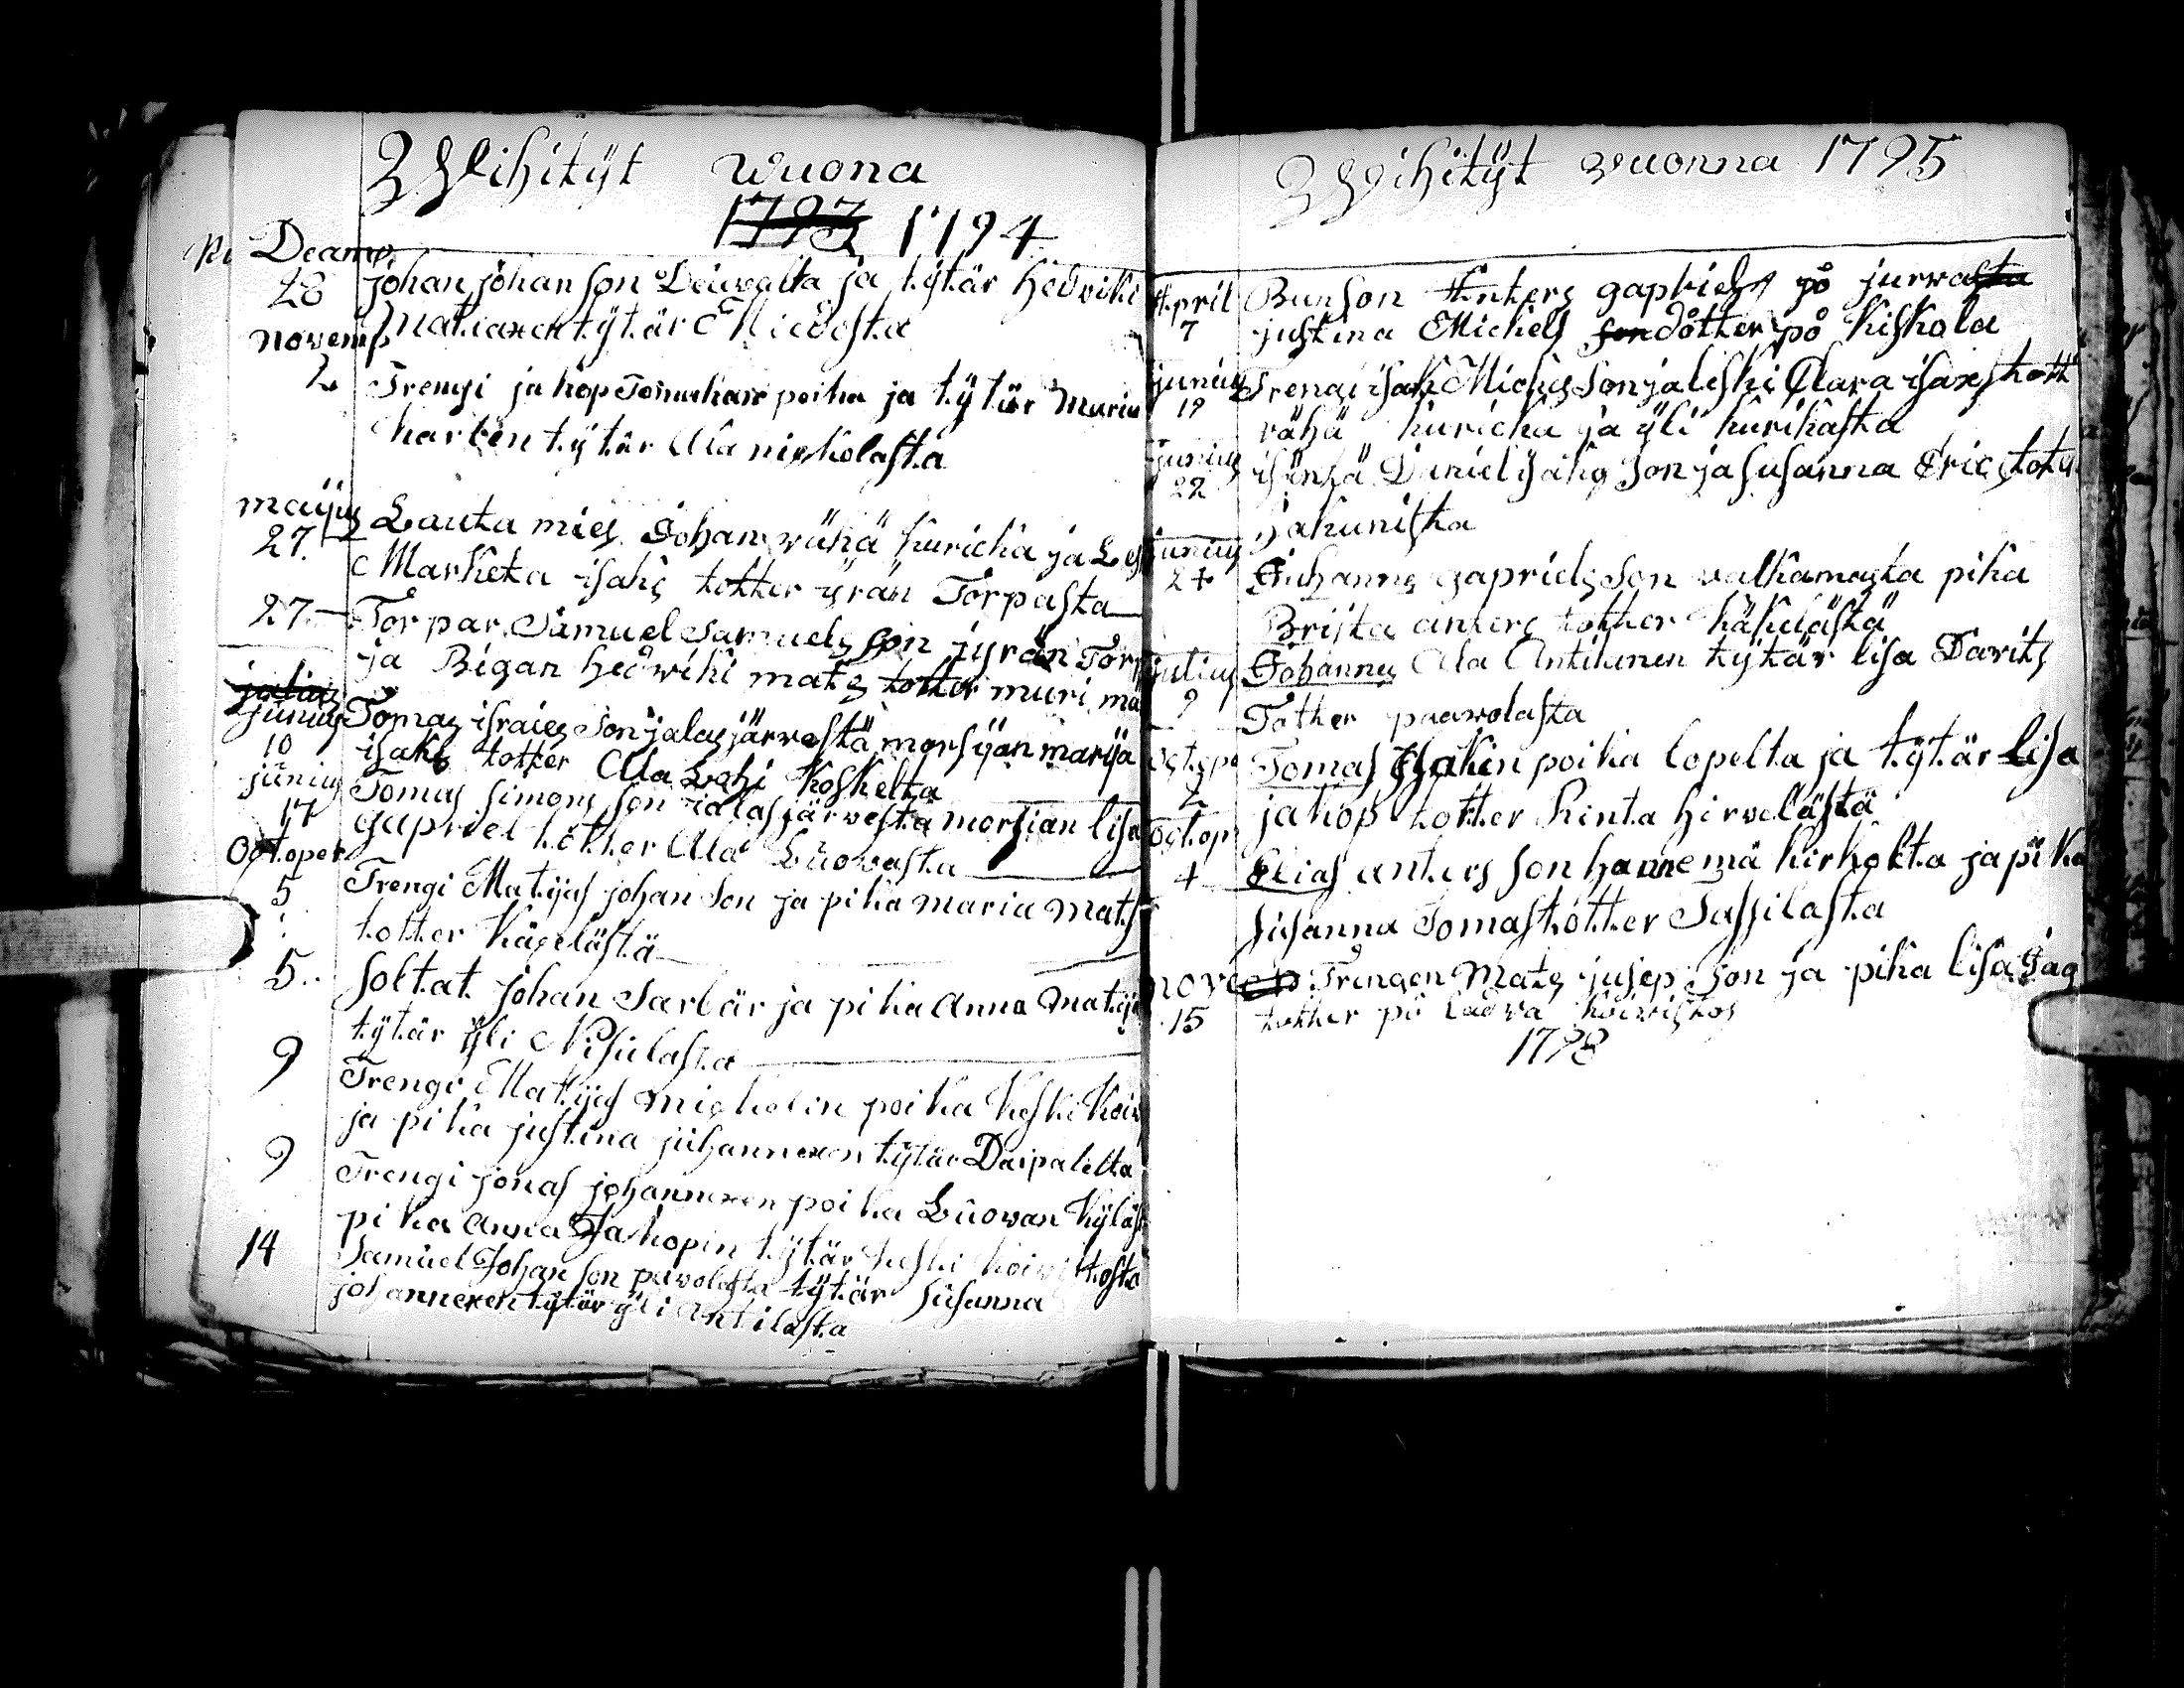 Wihityt wuona
1793 1794
Decamp
28 johan johan son Leiwalta ja tytär hedviki
Matiaxen tytär Niedosta
novemp
2 Trengi jakop Tomuhan poika ja tytär Maria
harben tytär Ala nickolasta
mayus
27. Lauta mies Johan wähä kuricka ja Les
Marketa isaks totter yrän Torpasta
27 Torpar Samuel Samuels son jyrän Torp
ja Bigan hedwiki mats totter muri mä
julius
junius Tomas israies son jalasjärvestä morsyan marya
10 isaks totter Ala Lahi koskelta
junius Tomas simons son ialasjärwesta morsian lisa
17 gapriel totter Ala Luowasta
Octoper
5 Trengi Matyas johan son ja pika maria Mats
totter käkelästä
5. soltat johan Sarbär ja pika Anna Matys
tytär yli Nisulasta
9 Trengi Matyas Mickelin poika keski koiw
ja pika justina juhannexen tytär Daipalelta
9 Trengi jonas johannexen poika Luowan kyläs
pika Anna Jakopin tytär keski koiwistosta
14 Samuel Johan son pavolasta tytär Susanna
johannexen tytär yli Antilasta
Wihityt wuonna 1795
April Bunson Anters gapriels på jurwasta
7 justina Michels son dötter på kiskola
junius Trengi isak Michis son ja leski Clara isaxs tott
19 vähä kuricka ja yli kurikasta
junius isäntä Daniel isaks son ja susanna Erics totte
22 jakunista
junius
24 Juhannes gapriels son valkamasta pika
Brijta anters totter häkiläsktä
julius Johannes Ala Antilanen tytär lisa Davits
9 Totter paavolasta
Octope Tomas Isakin poika lopelta ja tytär Lisa
2 jakop totter Rinta hirvelästä
Octop
4 Elias anters son hannemä kirkolta ja pika
susanna Tomas totter Sassilasta
novem Trengen Mats jusep son ja pika lisa Jag
15 totter på ladva koiwistos
1798